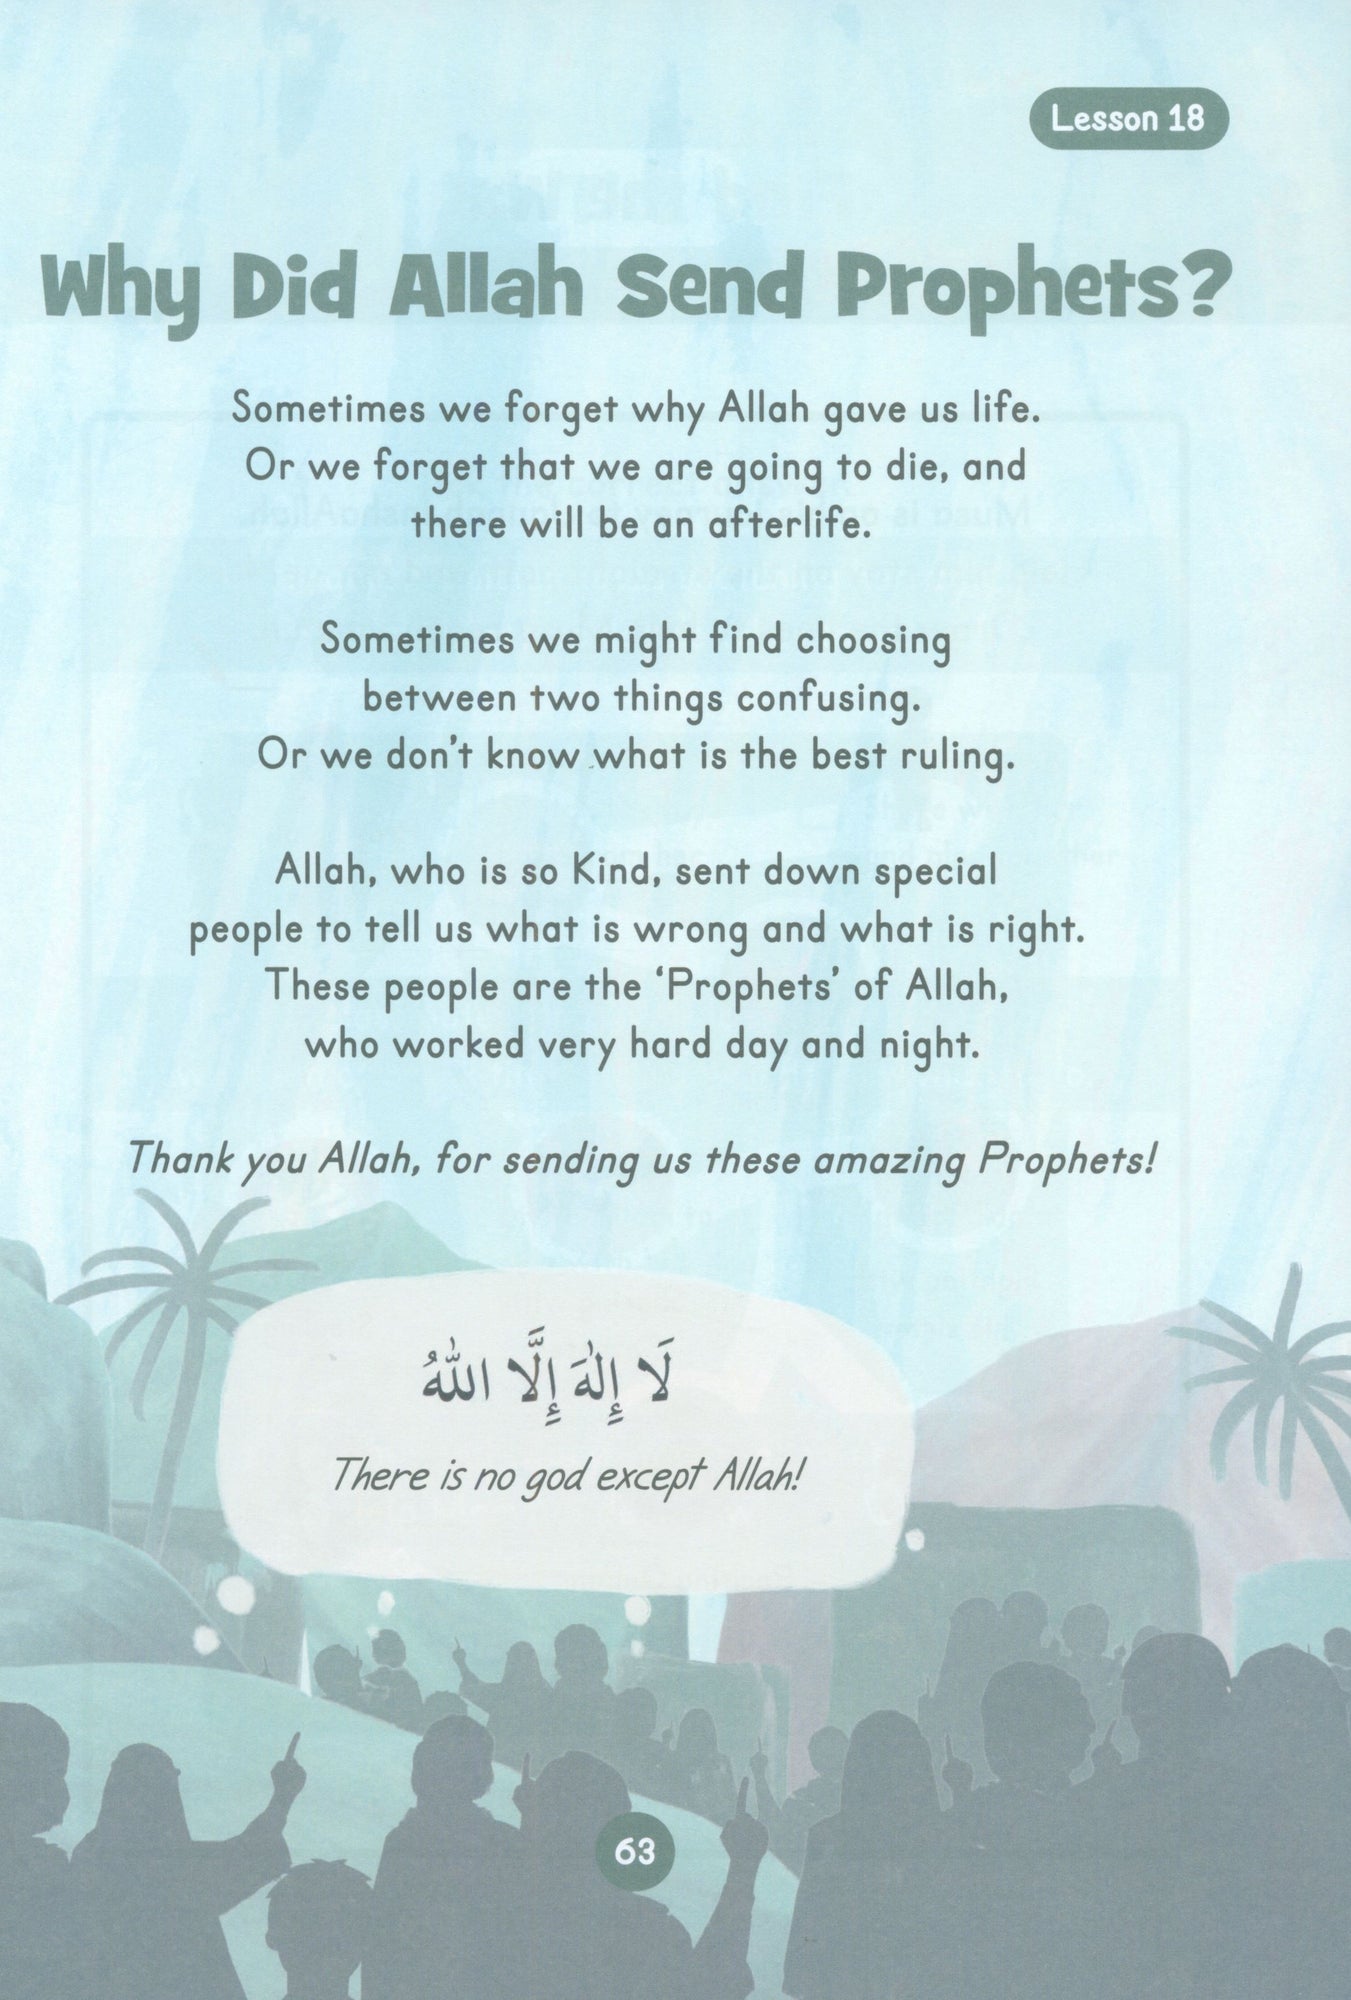 Lesson 18
Why Did Allah Send Prophets?
Sometimes we forget why Allah gave us life.
Or we forget that we are going to die, and
there will be an afterlife.
Sometimes we might find choosing
between two things confusing.
Or we don't know what is the best ruling.
Allah, who is so Kind, sent down special
people to tell us what is wrong and what is right.
These people are the ‘Prophets’ of Allah,
who worked very hard day and night.
Thank you Allah, for sending us these amazing Prophets!
لَا إِلٰهَ إِلَّا اللّٰهُ
There is no god except Allah!
63